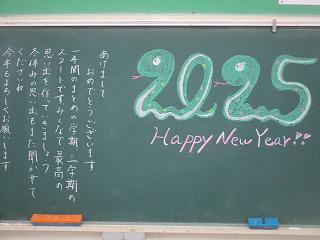 あけまして
おめでとうございます
一年間のまとめの学期、三学期の
スタートです。みんなで最高の
思い出を作っていきましょう
冬休みの思い出もまた聞かせて
くださいね
今年もよろしくお願いします
2025
Happy New Year!!